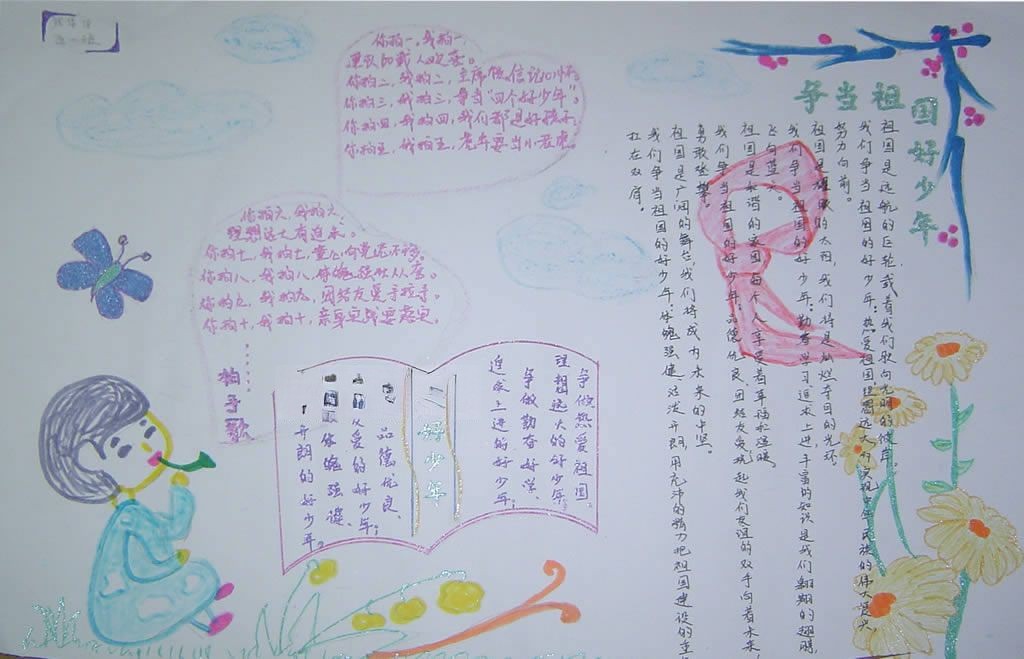 争当祖国好少年
祖国是远航的巨轮，载着我们驶向光明的彼岸。
我们争当祖国的好少年：热爱祖国，理想远大，实现中华民族的伟大复兴
努力向前。
祖国是耀眼的太阳，我们将是灿烂夺目的光环。
我们争当祖国的好少年：勤奋学习追求上进，丰富的知识是我们翱翔的翅膀，
飞向蓝天。
祖国是和谐的家园，每个人享受着幸福和温暖。
我们争当祖国的好少年：品德优良、团结友爱，挽起我们友谊的双手向着未来，
勇敢攀登。
祖国是广阔的舞台，我们将成为未来的中坚。
我们争当祖国的好少年：体魄强健、活泼开朗，用充沛的精力把祖国建设的重
扛在双肩。
你拍一，我拍一，
你拍二，我拍二，主席
你拍三，我拍三，争当“四个好少年”。
你拍四，我拍四，我们都是好孩子；
你拍五，我拍五，
你拍六，我拍六，
理想远大有追求。
你拍七，我拍七，
你拍八，我拍八，体魄强壮
你拍九，我拍九，团结友爱手拉手。
你拍十，我拍十，
拍手歌
争做热爱祖国、
理想远大的好少年；
争做勤奋好学、
追求上进的好少年；
好少年
品德优良、
友爱的好少年；
体魄强健、
开朗的好少年。